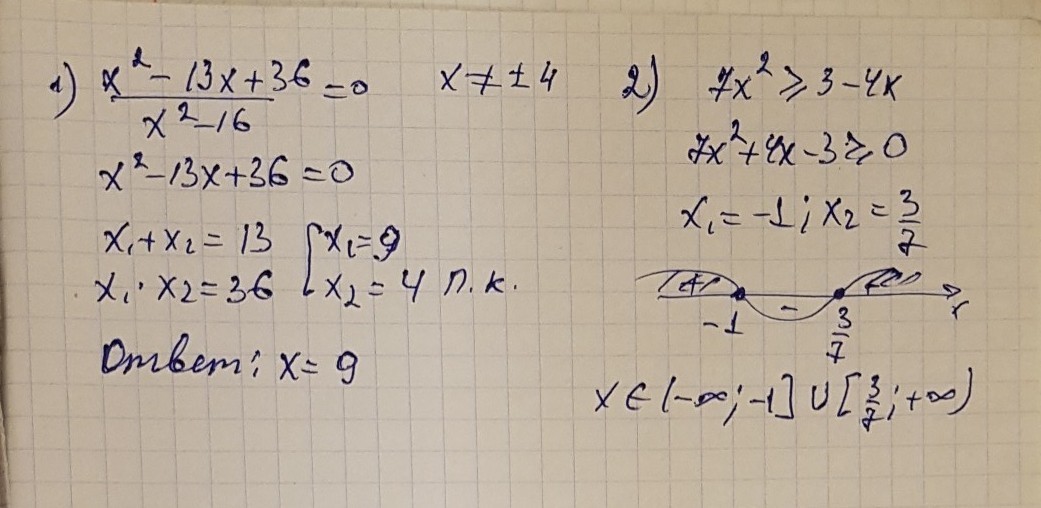 1) x² - 13x + 36 / x² - 16 = 0   x ≠ ± 4
x² - 13x + 36 = 0
x₁ + x₂ = 13   [ x₁ = 9
x₁ · x₂ = 36   [ x₂ = 4 п.к.
Ответ: x = 9
2) 7x² ≥ 3 - 4x
7x² + 4x - 3 ≥ 0
x₁ = -1; x₂ = 3/7
+ - +
-1 3/7 x
x ∈ (-∞; -1] ∪ [3/7; +∞)